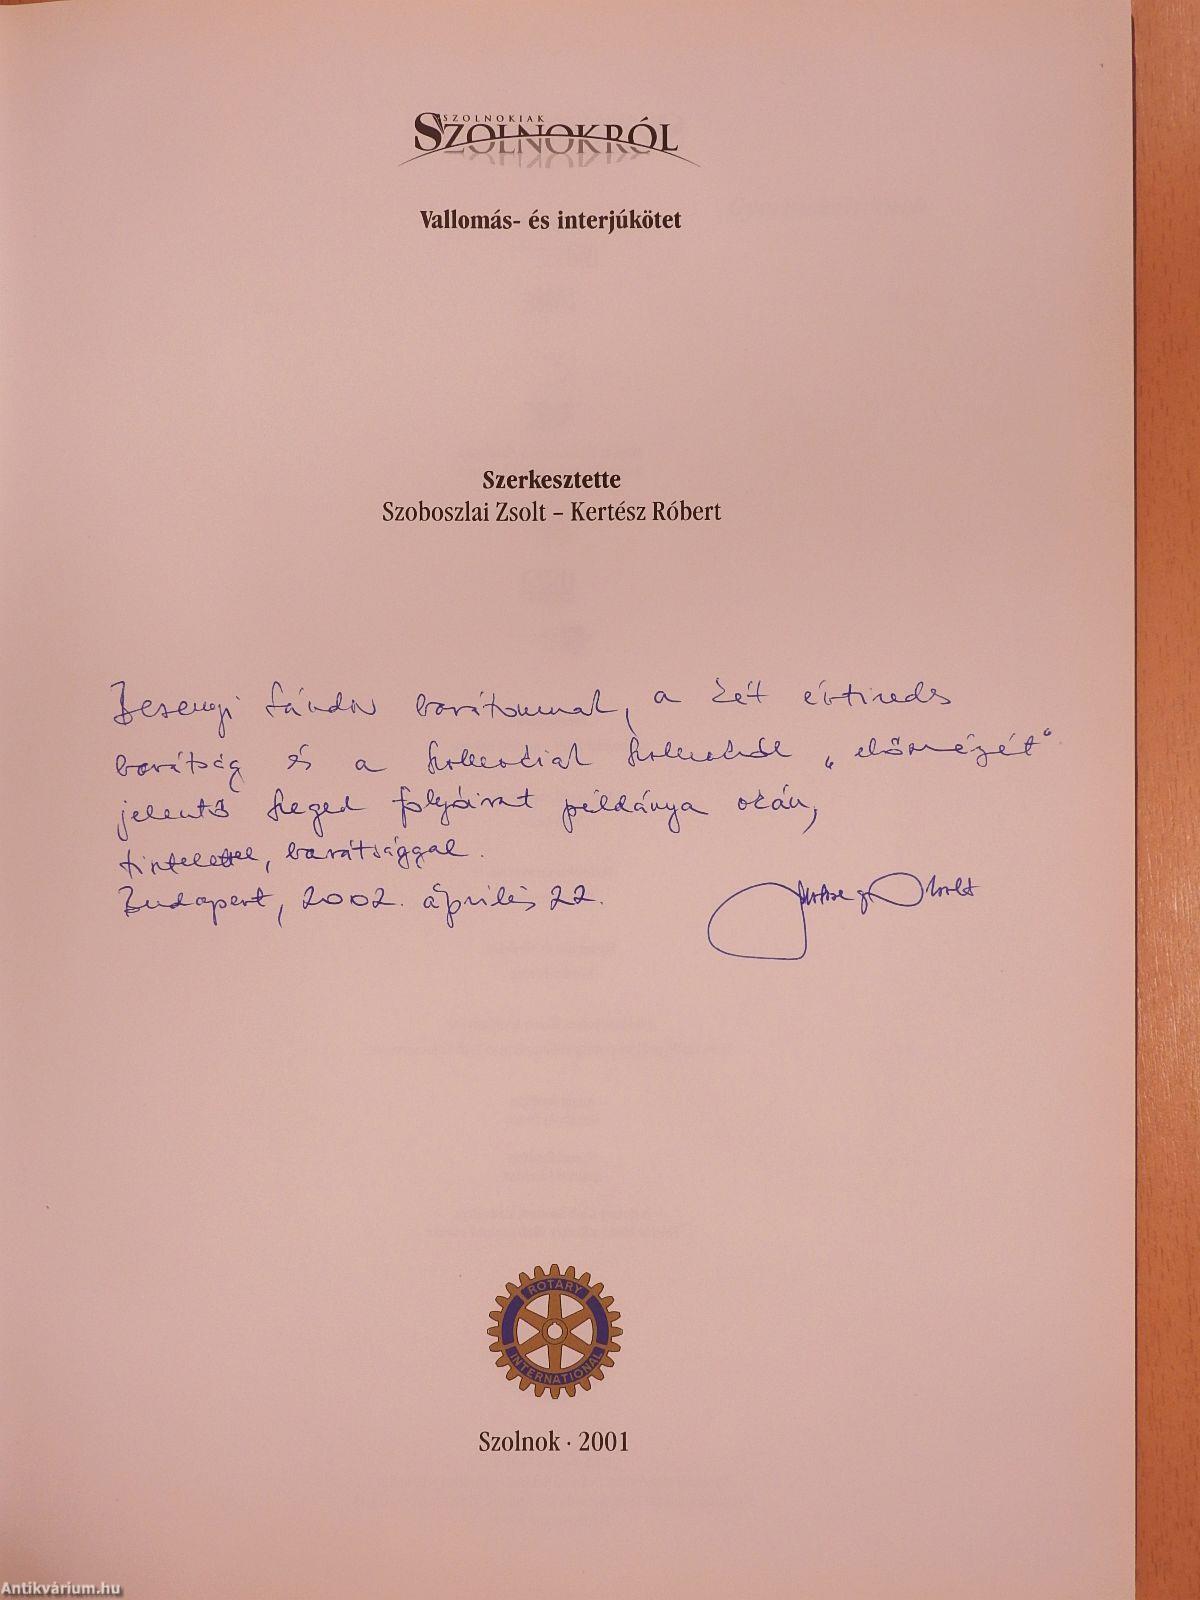 SZOLNOKIAK
SZOLNOKRÓL
Vallomás- és interjúkötet
Szerkesztette
Szoboszlai Zsolt – Kertész Róbert
Besenyi Sándor barátomnak, a két évtizedes
barátság és a Szolnokiak Szolnokról „előmézét"
jelentő Szeged folyóirat példánya okán,
tisztelettel, barátsággal.
Budapest, 2002. április 22.
ROTARY
INTERNATIONAL
Szolnok · 2001
Antikvárium.hu